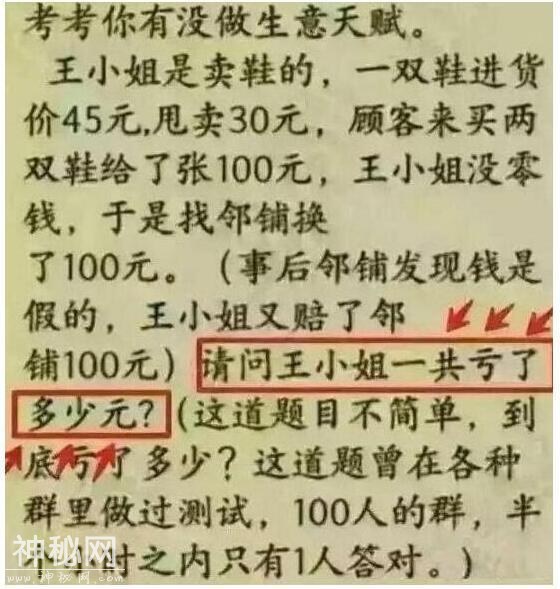 考考你有没做生意天赋。
王小姐是卖鞋的，一双鞋进货
价45元,甩卖30元，顾客来买两
双鞋给了张100元，王小姐没零
钱，于是找邻铺换
了100元。（事后邻铺发现钱是
假的，王小姐又赔了邻
铺100元）请问王小姐一共亏了
多少元?（这道题目不简单，到
底亏了多少？这道题曾在各种
群里做过测试，100人的群，半
个小时之内只有1人答对。）
神秘网
www.神秘网.com